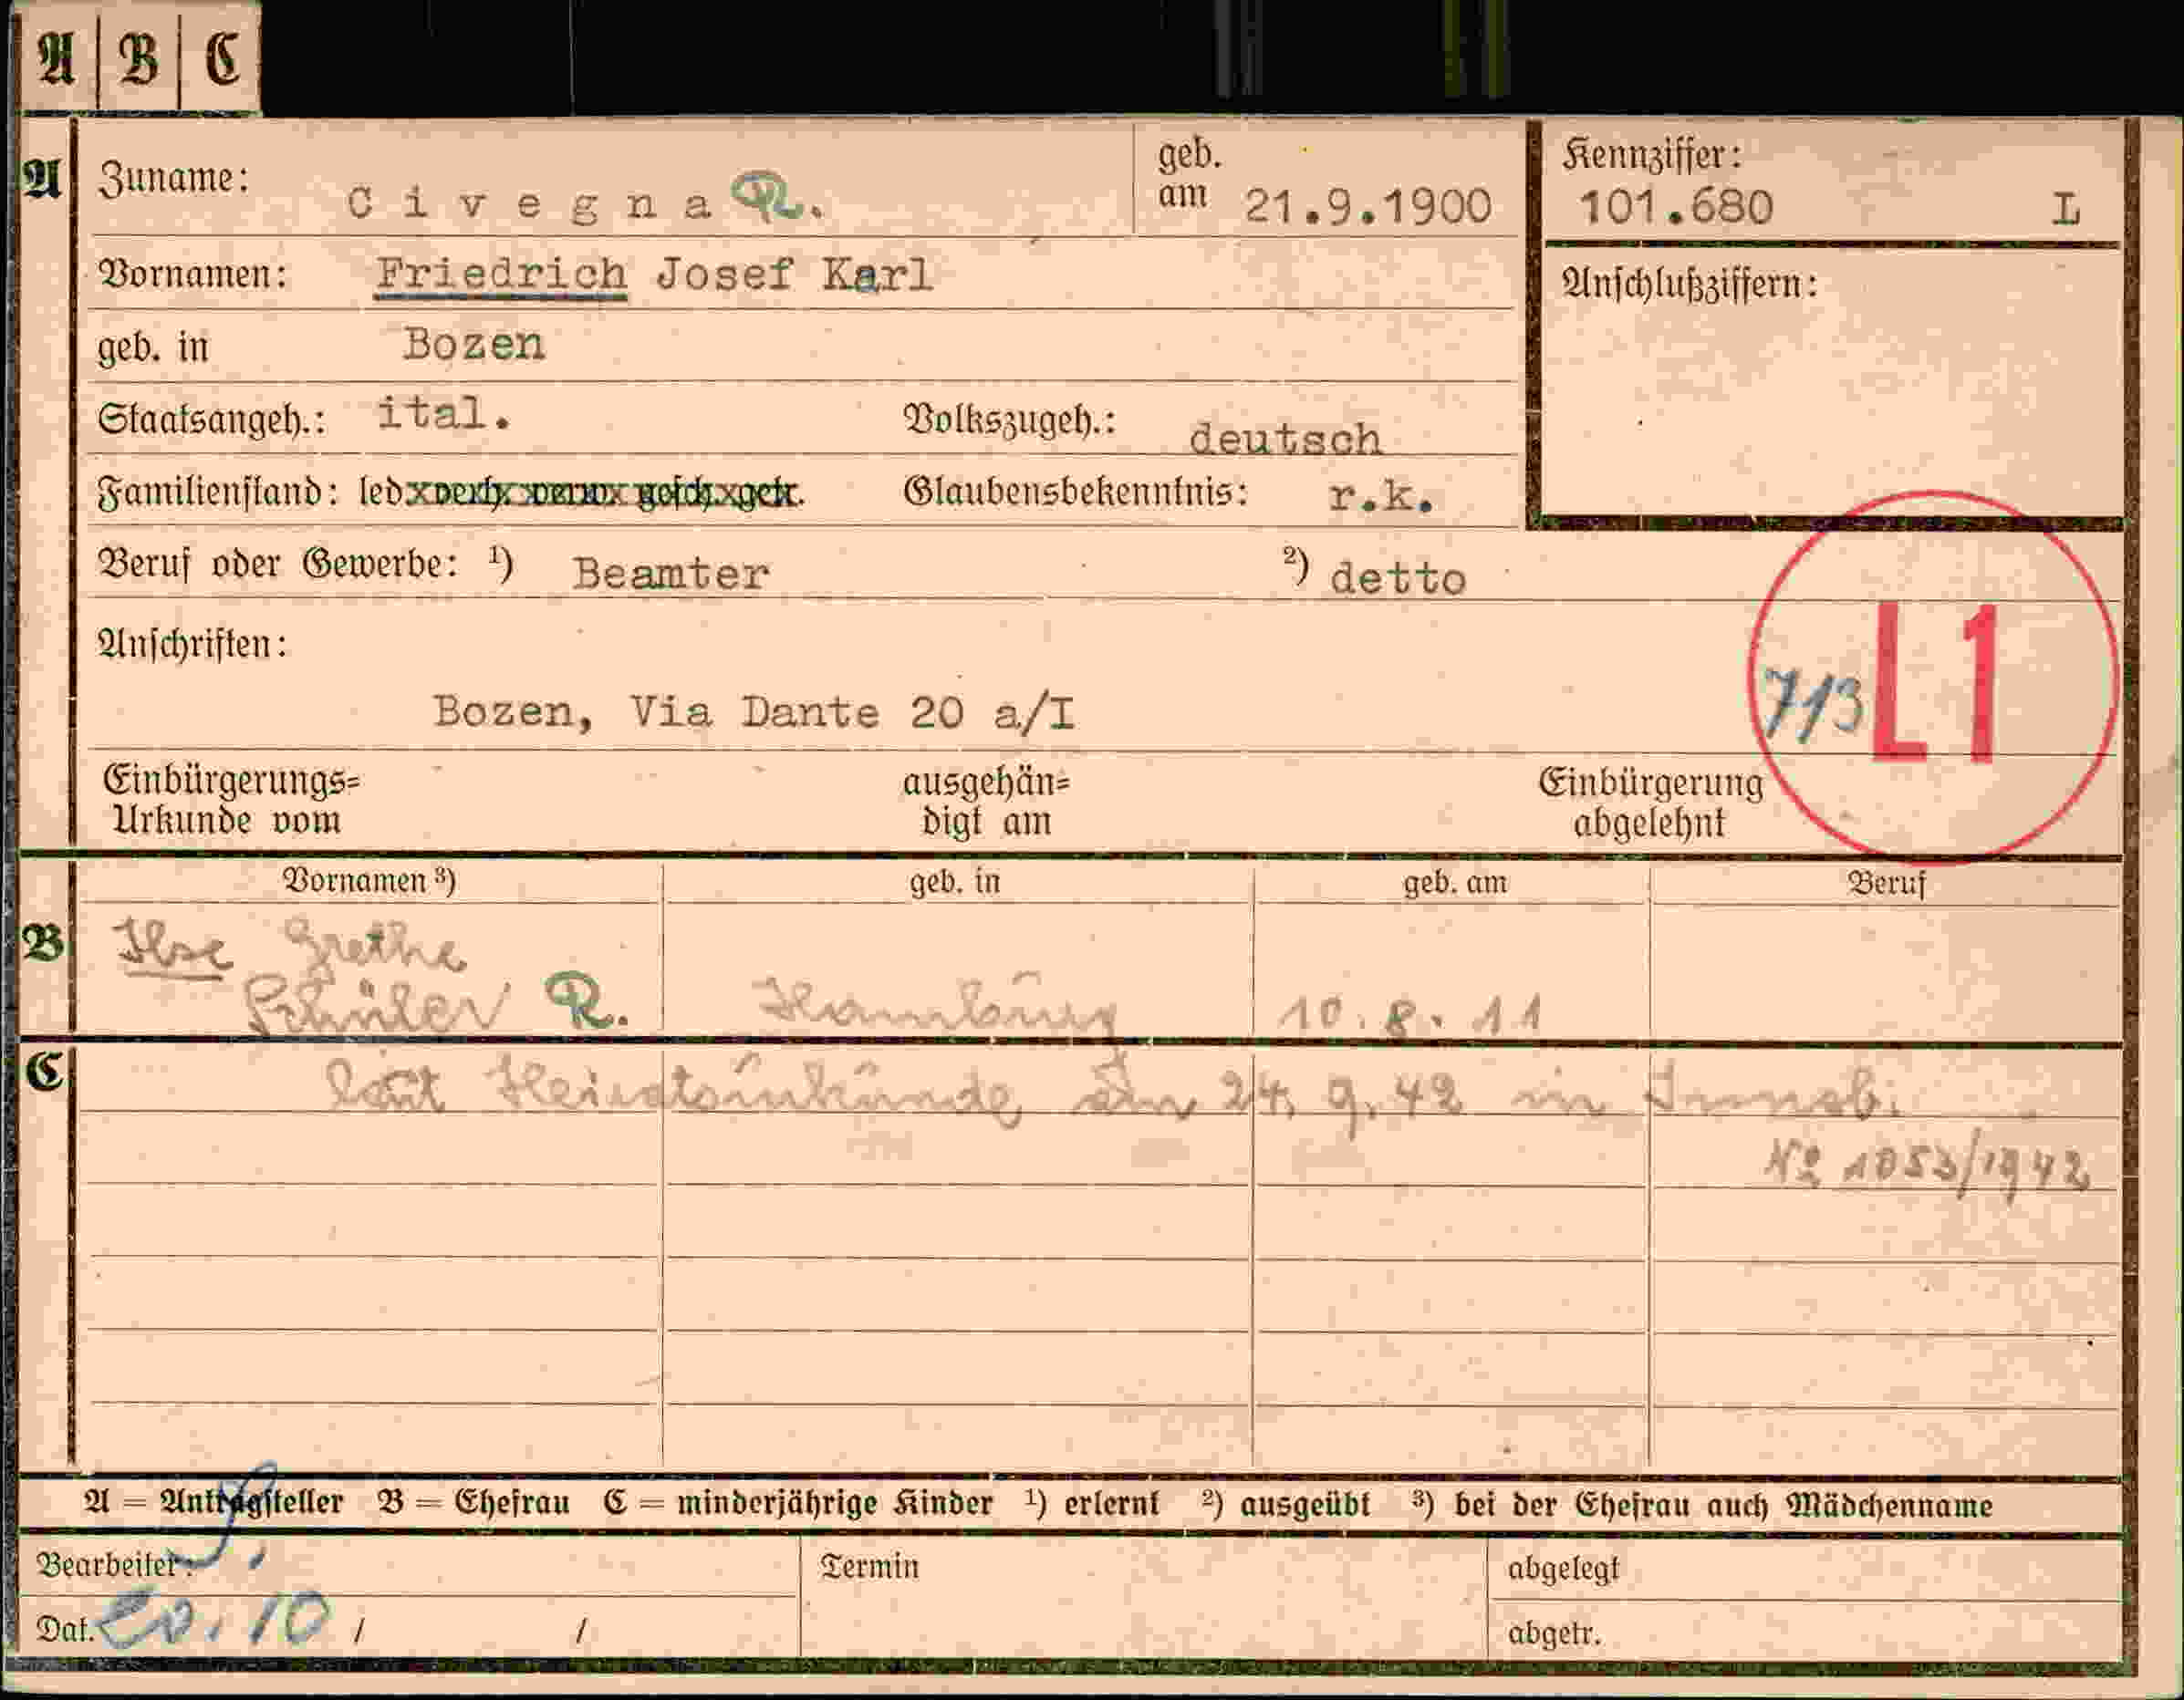 A B C
A Zuname: Civegna R. geb. am 21.9.1900 Kennziffer: 101.680 L
Vornamen: Friedrich Josef Karl Anschlußziffern:
geb. in Bozen
Staatsangeh.: ital. Volkszugeh.: deutsch
Familienstand: led. verh. verw. gesch. getr. Glaubensbekenntnis: r.k.
Beruf oder Gewerbe: ¹) Beamter ²) detto
Anschriften:
L1
713
Bozen, Via Dante 20 a/I
Einbürgerungs= ausgehän= Einbürgerung
Urkunde vom digt am abgelehnt
Vornamen ³) geb. in geb. am Beruf
B Ilse Grethe
Schüler R. Hamburg 10.8.11
C laut Heiratsurkunde am 24.9.42 in Innsb.
№ 1053/1942
A = Antragsteller B = Ehefrau C = minderjährige Kinder ¹) erlernt ²) ausgeübt ³) bei der Ehefrau auch Mädchenname
Bearbeiter: Termin abgelegt
Dat. 20.10 / / abgetr.